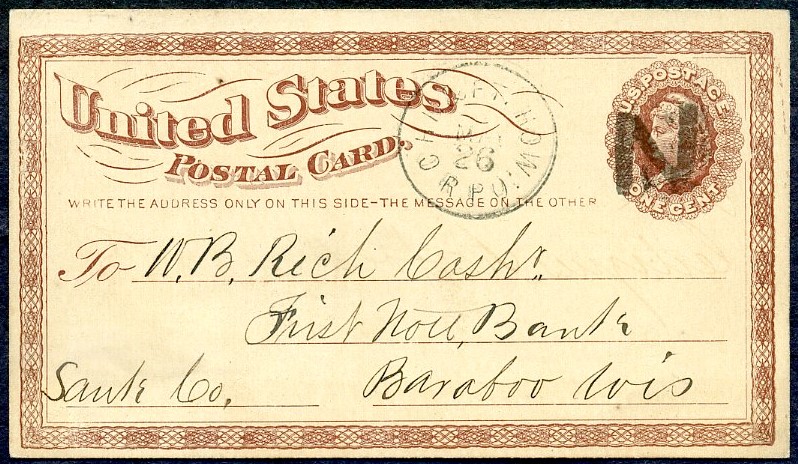 United States
Postal Card.
WRITE THE ADDRESS ONLY ON THIS SIDE-THE MESSAGE ON THE OTHER
U.S. POSTAGE
ONE CENT
26
R.P.O.
N
To W. B. Rich Cashr.
First Natl. Bank
Baraboo Wis
Sauk Co.